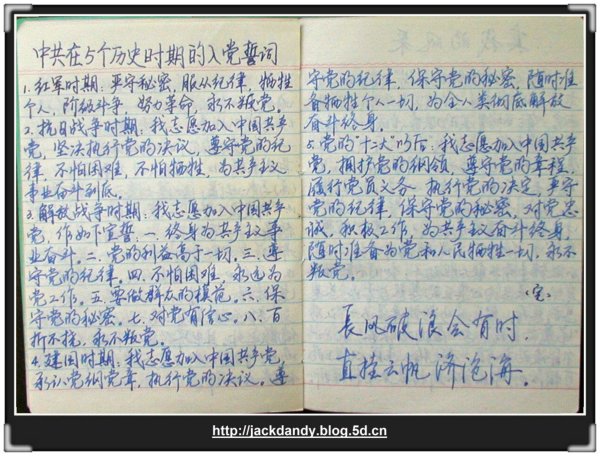 中共在5个历史时期的入党誓词
1. 红军时期：严守秘密，服从纪律，牺牲
个人，阶级斗争，努力革命，永不叛党。
2. 抗日战争时期：我志愿加入中国共产
党，坚决执行党的决议，遵守党的纪
律，不怕困难，不怕牺牲，为共产主义
事业奋斗到底。
3. 解放战争时期：我志愿加入中国共产
党，作如下宣誓：一.终身为共产主义事
业奋斗。二.党的利益高于一切。三.遵
守党的纪律。四.不怕困难，永远为
党工作。五.要做群众的模范。六.保
守党的秘密。七.对党有信心。八.百
折不挠，永不叛党。
4. 建国时期：我志愿加入中国共产党，
承认党纲党章，执行党的决议。遵
守党的纪律，保守党的秘密，随时准
备牺牲个人一切，为全人类彻底解放
奋斗终身。
5. 党的“十二大”以后：我志愿加入中国共产
党，拥护党的纲领，遵守党的章程，
履行党员义务，执行党的决定，严守
党的纪律，保守党的秘密，对党忠
诚，积极工作，为共产主义奋斗终身，
随时准备为党和人民牺牲一切，永不
叛党。
（完）
长风破浪会有时，
直挂云帆济沧海。
http://jackdandy.blog.5d.cn